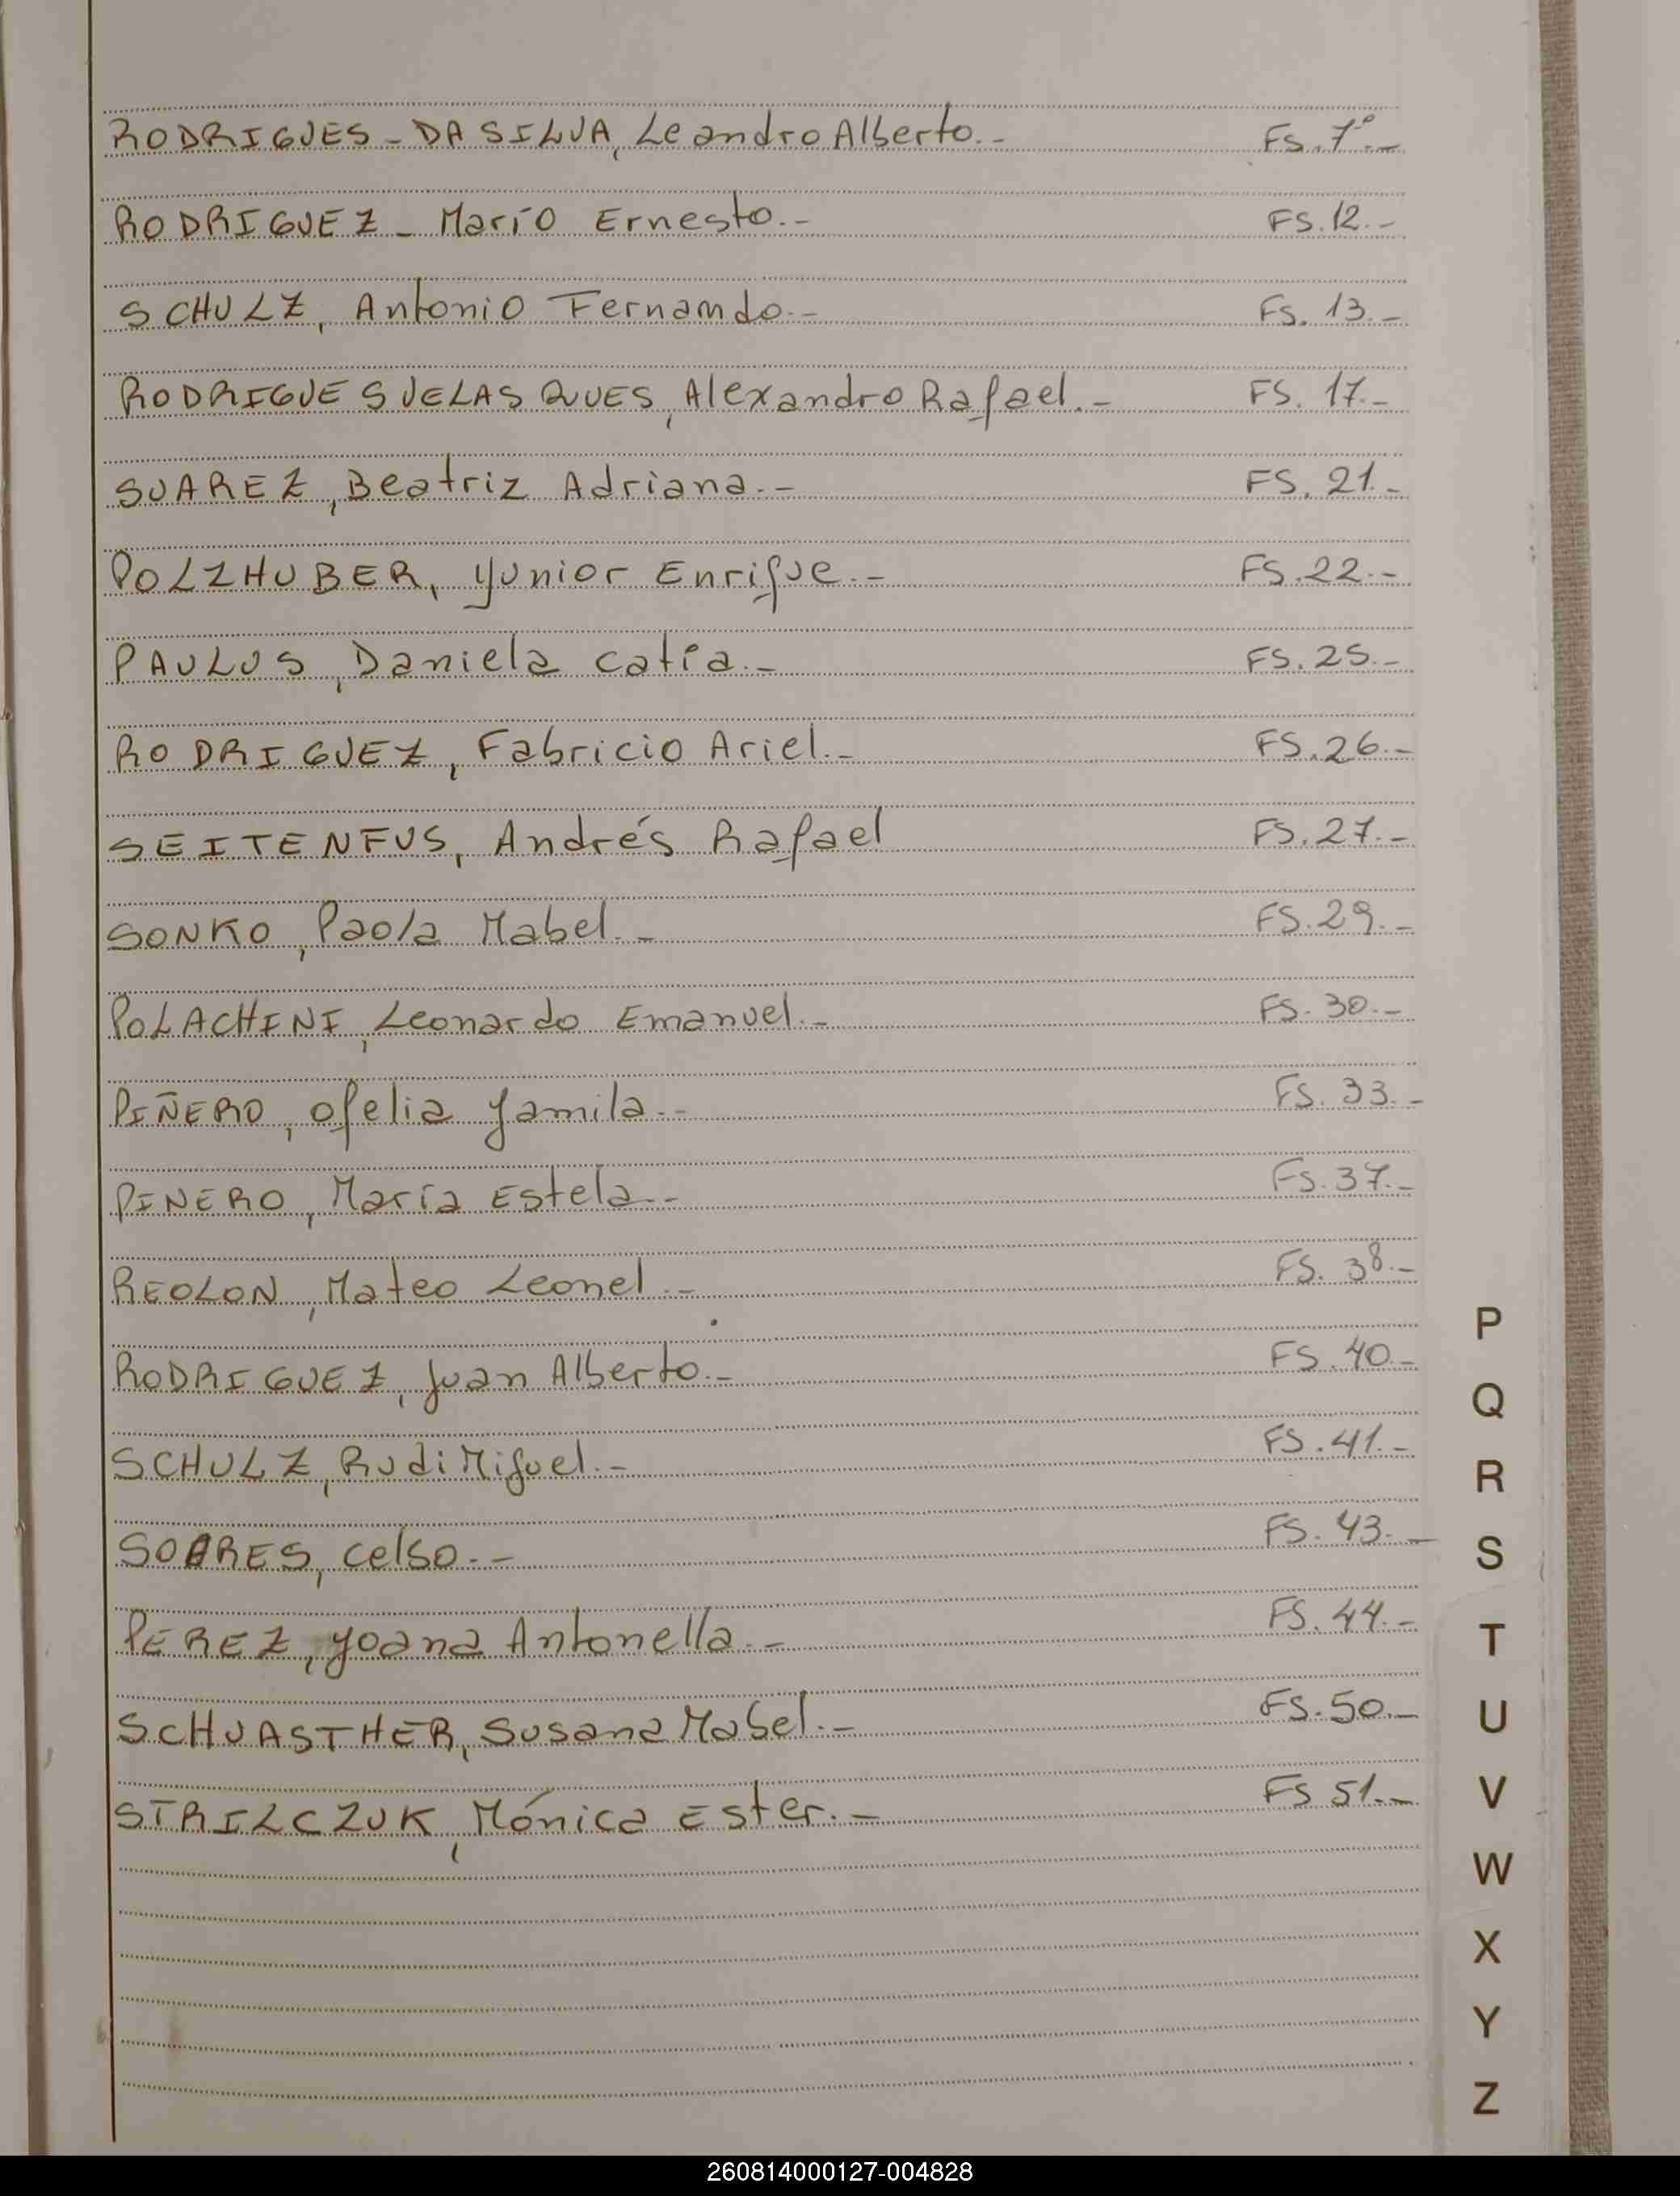 RODRIGUES - DA SILVA, Leandro Alberto.- FS. 7º.-
RODRIGUEZ - Mario Ernesto.- FS. 12.-
SCHULZ, Antonio Fernando.- FS. 13.-
RODRIGUES VELASQUES, Alexandro Rafael.- FS. 17.-
SUAREZ, Beatriz Adriana.- FS. 21.-
POLZHUBER, Yunior Enrique.- FS. 22.-
PAULUS, Daniela Catia.- FS. 25.-
RODRIGUEZ, Fabricio Ariel.- FS. 26.-
SEITENFUS, Andrés Rafael FS. 27.-
SONKO, Paola Mabel.- FS. 29.-
POLACHINI, Leonardo Emanuel.- FS. 30.-
PIÑERO, Ofelia Yamila.- FS. 33.-
PINERO, María Estela.- FS. 37.-
REOLON, Mateo Leonel.- FS. 38.-
RODRIGUEZ, Juan Alberto.- FS. 40.-
SCHULZ, Rudi Miguel.- FS. 41.-
SOARES, Celso.- FS. 43.-
PEREZ, Yoana Antonella.- FS. 44.-
SCHUASTHER, Susana Mabel.- FS. 50.-
STRILCZUK, Mónica Ester.- FS 51.-
P
Q
R
S
T
U
V
W
X
Y
Z
260814000127-004828